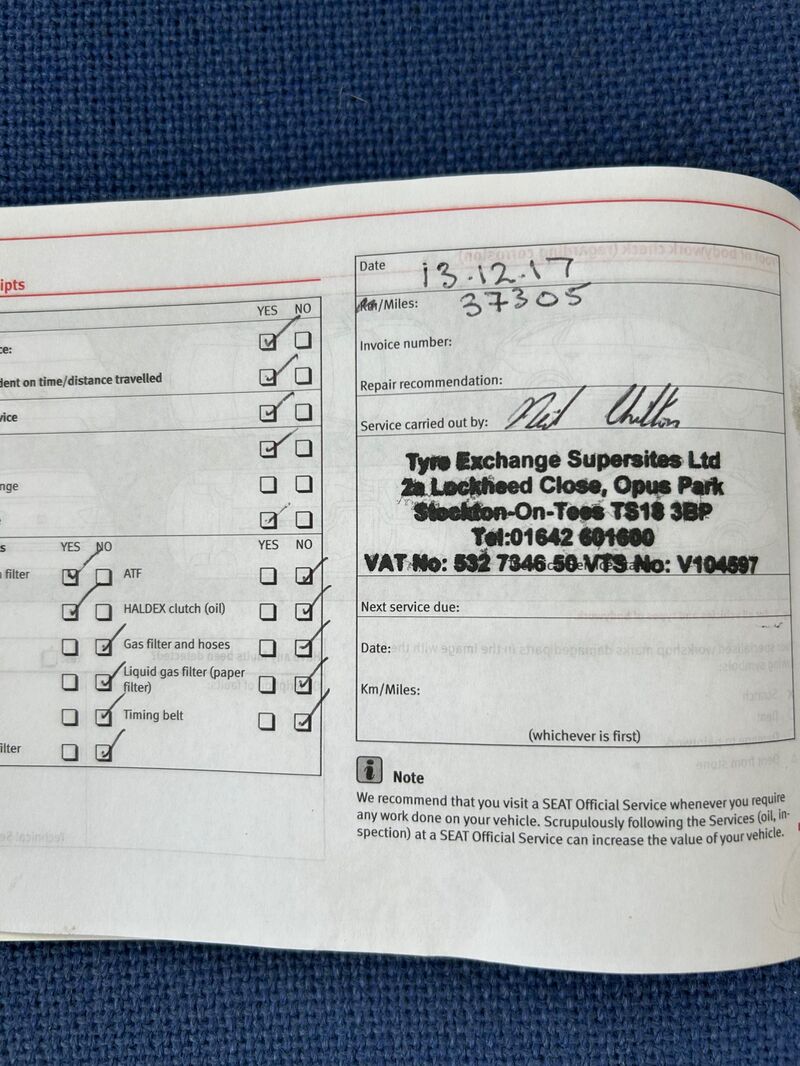 ipts
YES NO
ce:
dent on time/distance travelled
vice
nge
s YES NO YES NO
filter ATF
HALDEX clutch (oil)
Gas filter and hoses
Liquid gas filter (paper
filter)
Timing belt
ilter
Date 13.12.17
Km/Miles: 37305
Invoice number:
Repair recommendation:
Service carried out by: Neil
Tyre Exchange Supersites Ltd
2a Lockheed Close, Opus Park
Stockton-On-Tees TS18 3BP
Tel:01642 601600
VAT No: 532 7346 50 VTS No: V104597
Next service due:
Date:
Km/Miles:
(whichever is first)
i Note
We recommend that you visit a SEAT Official Service whenever you require
any work done on your vehicle. Scrupulously following the Services (oil, in-
spection) at a SEAT Official Service can increase the value of your vehicle.